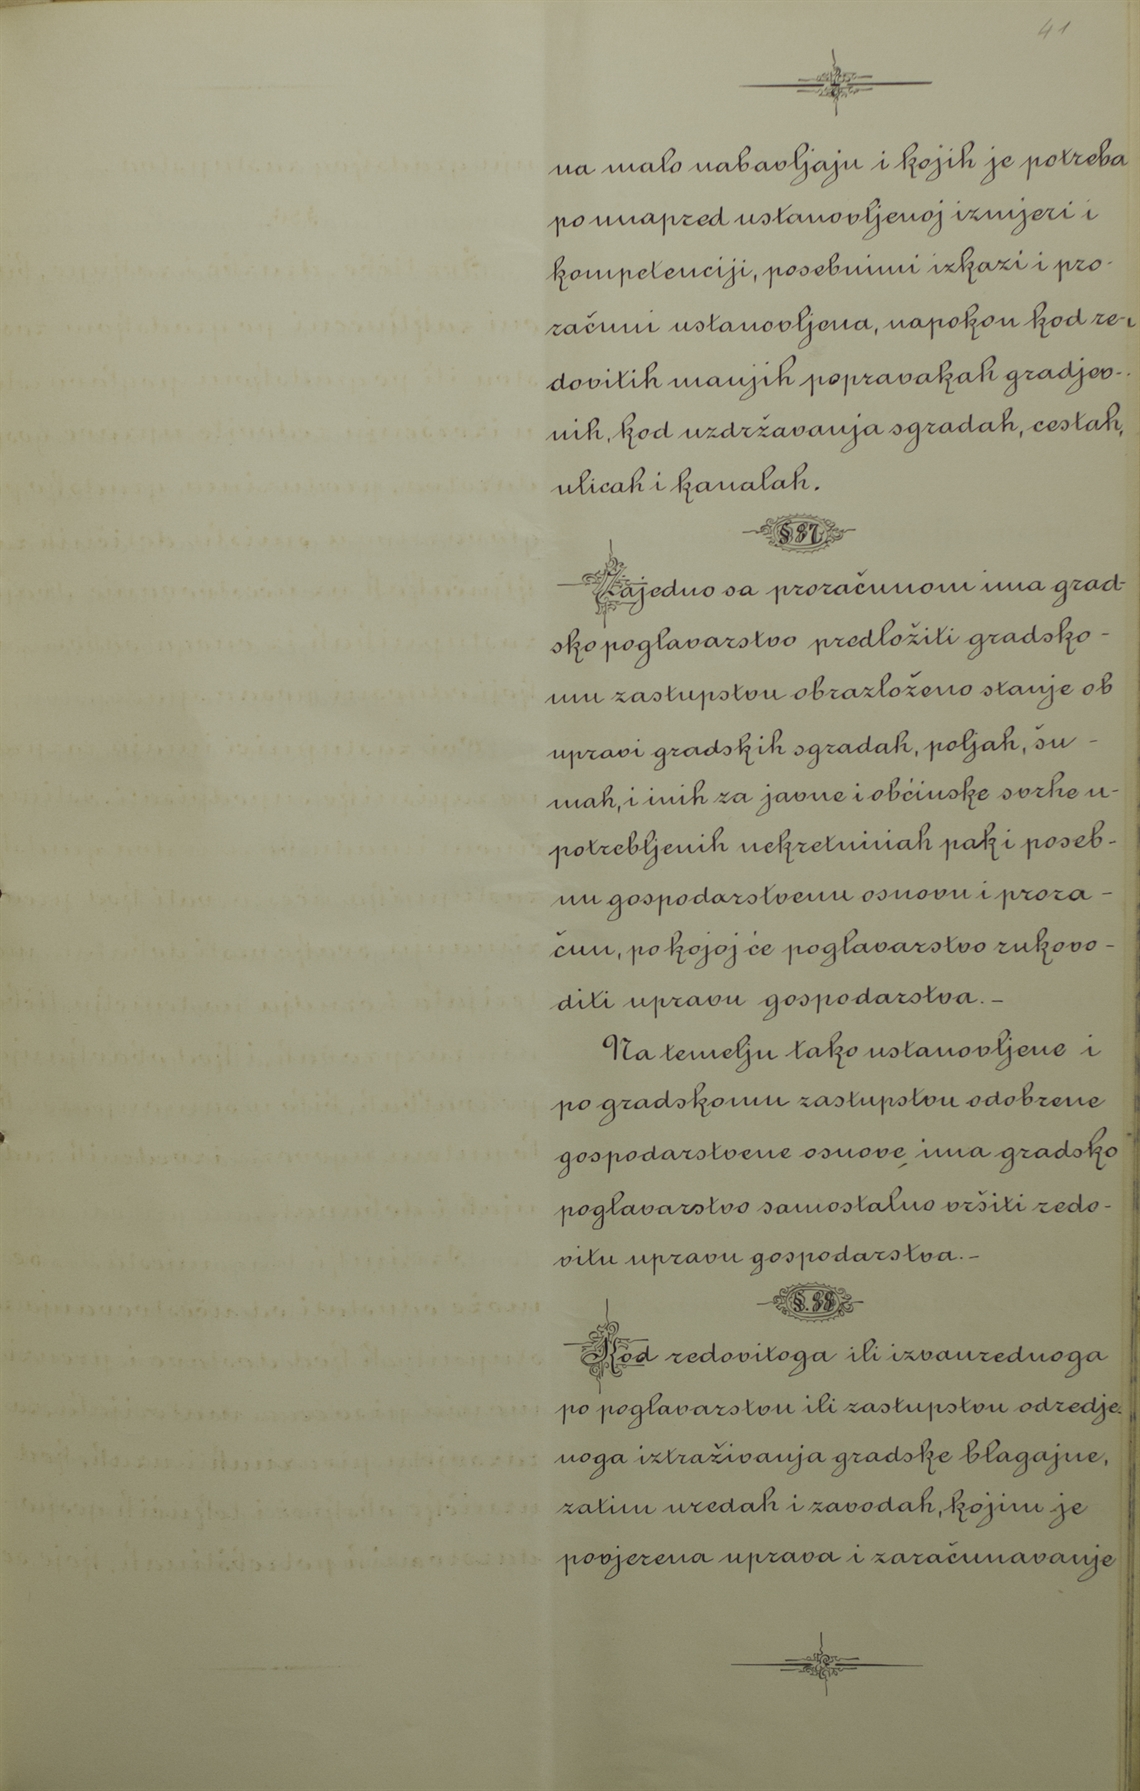 41
na malo nabavljaju i kojih je potreba
po unapred ustanovljenoj izmjeri i
kompetenciji, posebnimi izkazi i pro-
računi ustanovljena, napokon kod re-
dovitih manjih popravakah gradjev-
nih, kod uzdržavanja sgradah, cestah,
ulicah i kanalah.
§ 87
Zajedno sa proračunom ima grad-
sko poglavarstvo predložiti gradsko-
mu zastupstvu obrazloženo stanje ob
upravi gradskih sgradah, poljah, šu-
mah, i inih za javne i občinske svrhe u-
potrebljenih nekretninah pak i poseb-
nu gospodarstvenu osnovu i prora-
čun, po kojoj će poglavarstvo rukovo-
diti upravu gospodarstva.-
Na temelju tako ustanovljene i
po gradskomu zastupstvu odobrene
gospodarstvene osnove, ima gradsko
poglavarstvo samostalno vršiti redo-
vitu upravu gospodarstva.-
§. 88
Kod redovitoga ili izvanrednoga
po poglavarstvu ili zastupstvu odredje-
noga iztraživanja gradske blagajne,
zatim uredah i zavodah, kojim je
povjerena uprava i zaračunavanje